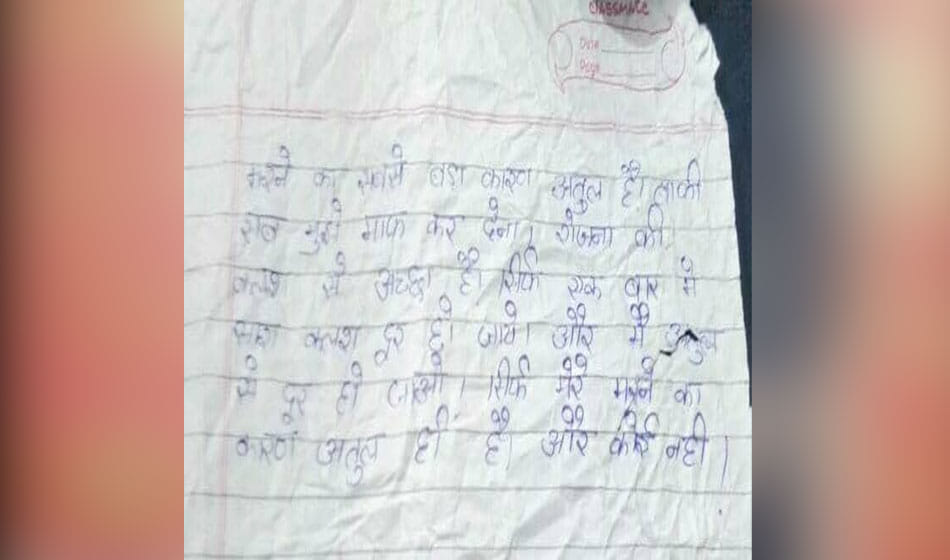 CLASSMATE
Date
Page
मरने का सबसे बड़ा कारण अतुल है। बाकी
सब मुझे माफ कर देना। रोजना की
क्लश से अच्छा है। सिर्फ एक बार मे
सारा क्लश दूर हो जाये। और मैं अतुल
से दूर हो जाओ। सिर्फ मेरे मरने का
कारण अतुल ही है। और कोई नही।